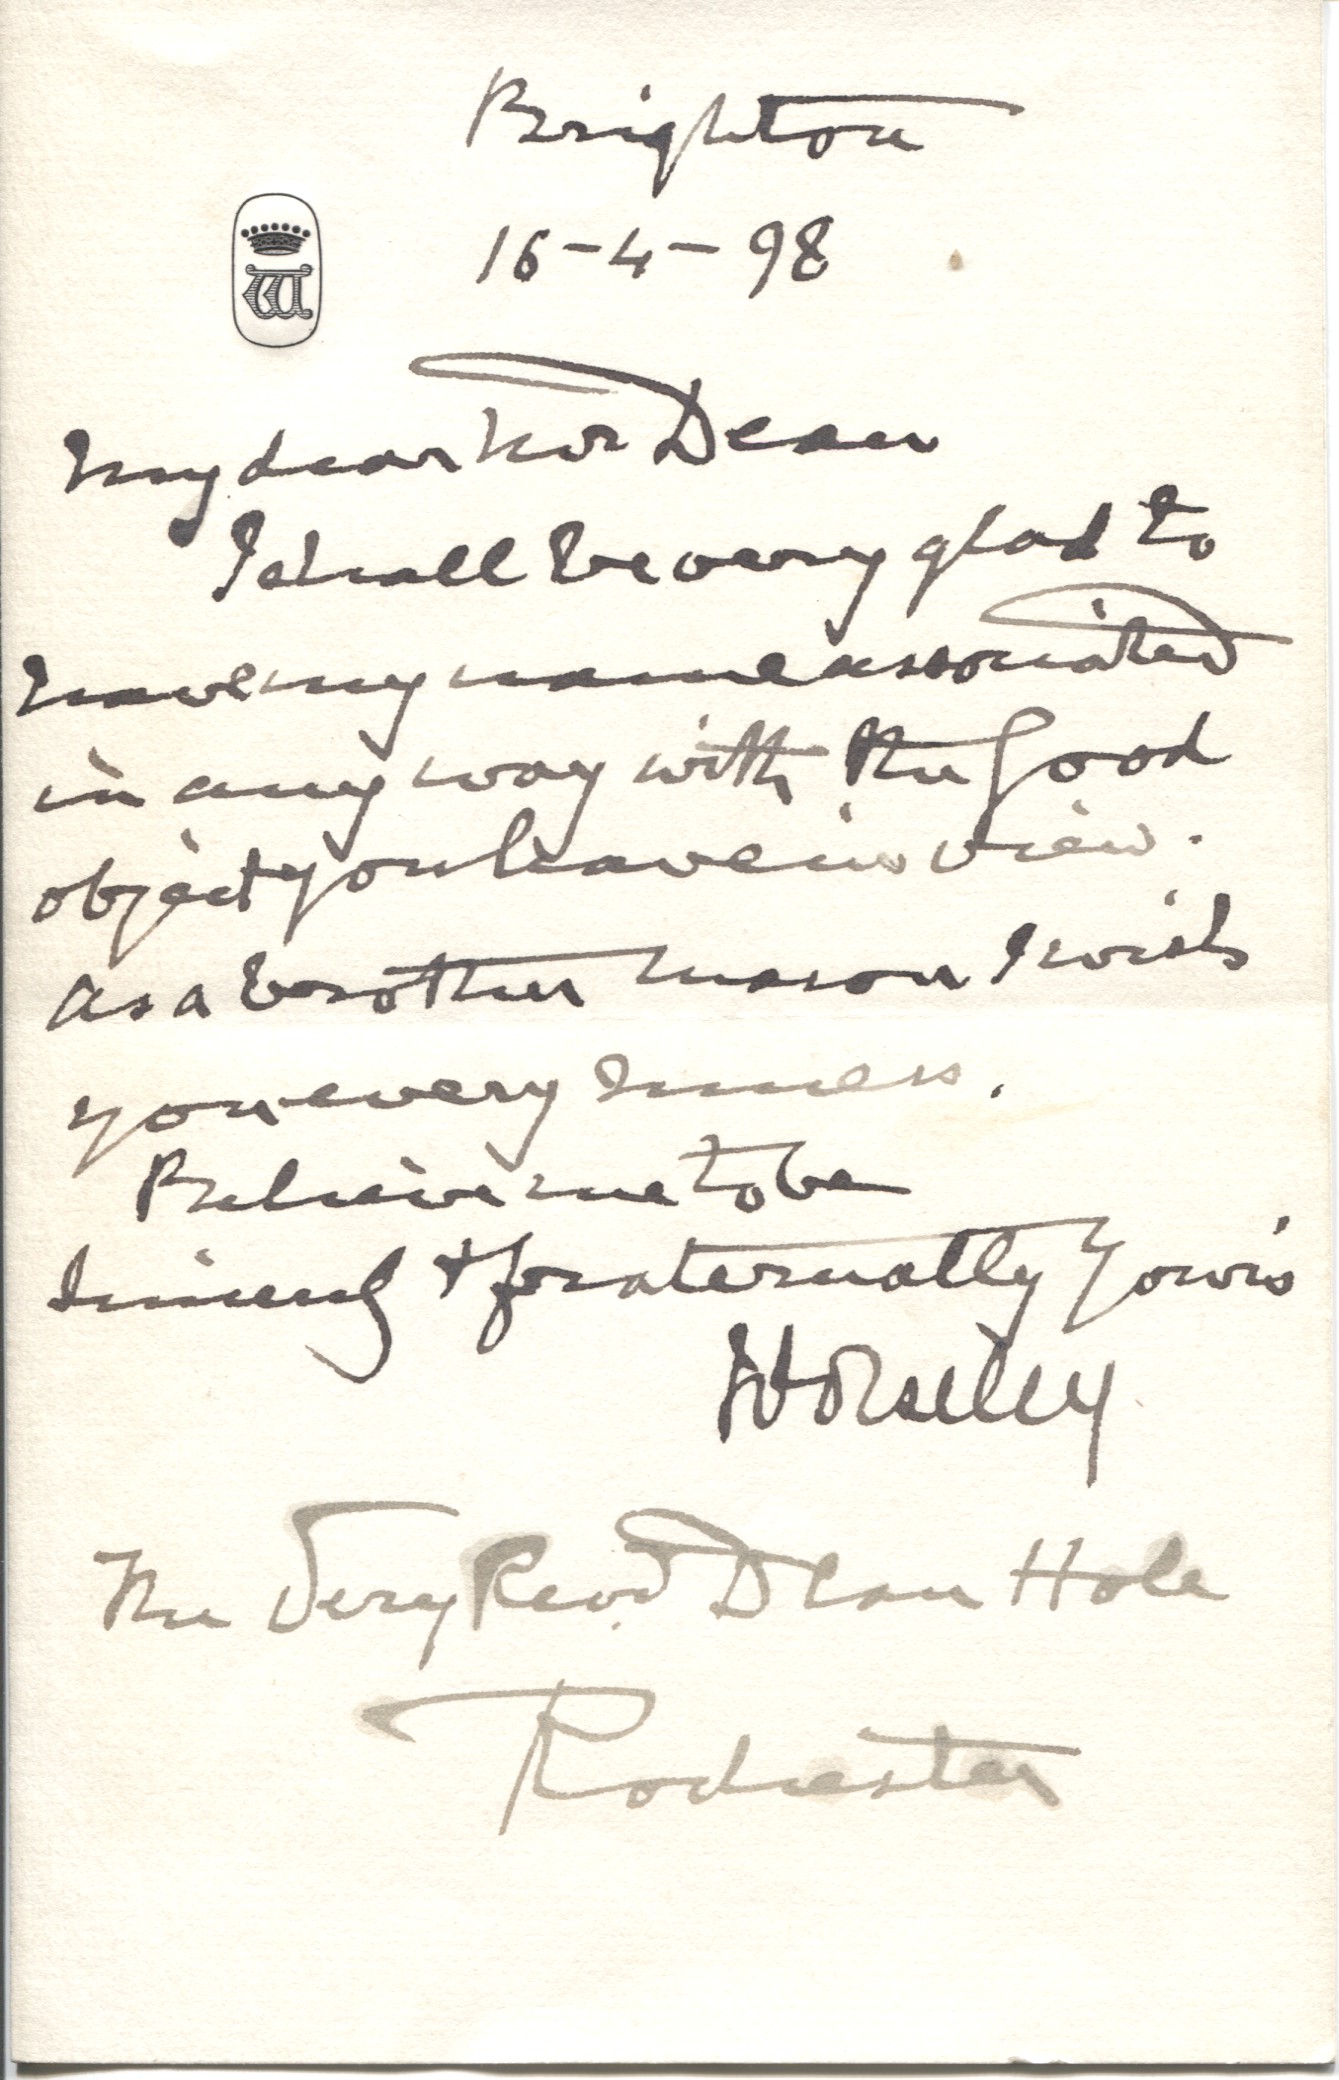 Brighton
16-4-98
W
My dear Mr Dean
I shall be very glad to
have my name associated
in any way with the good
object you have in view.
As a brother mason I wish
you every success.
Believe me to be
Sincerely & fraternally Yours
The Very Revd Dean Hole
Rochester